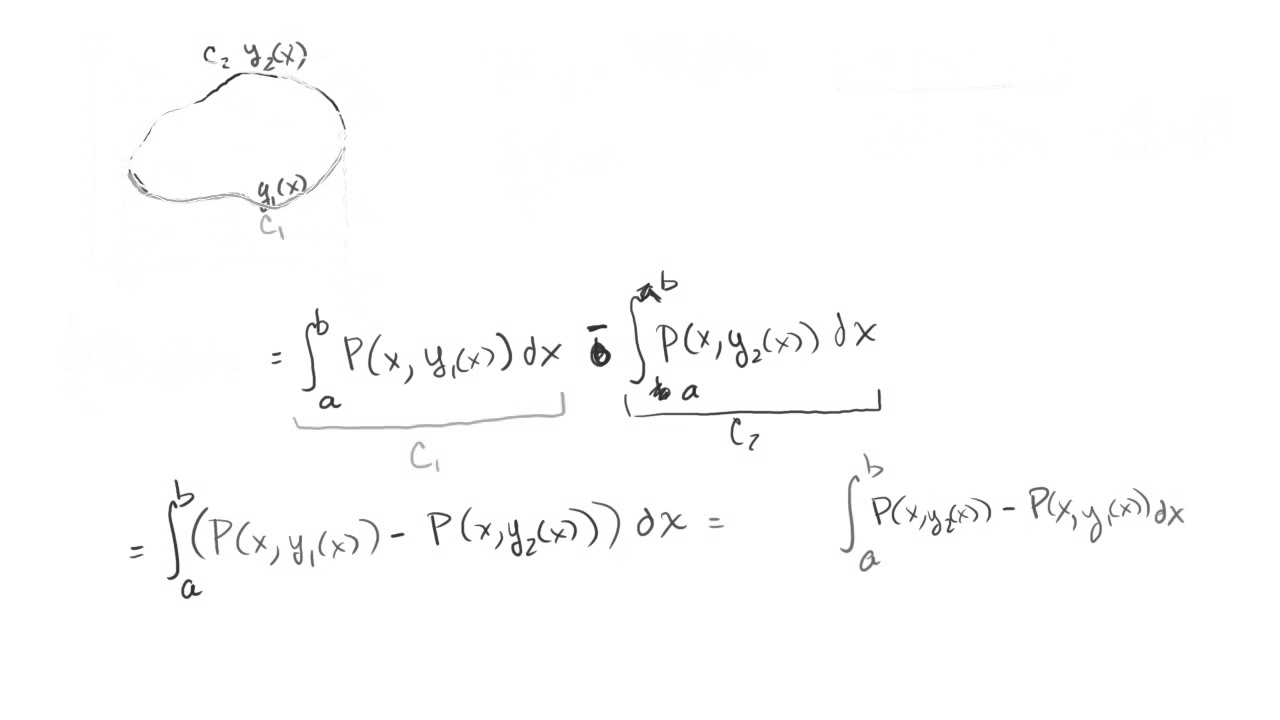 C₂ y₂(x)
y₁(x)
C₁
= ∫ₐᵇ P(x, y₁(x)) dx - ∫ₐᵇ P(x, y₂(x)) dx
C₁ C₂
= ∫ₐᵇ (P(x, y₁(x)) - P(x, y₂(x))) dx = ∫ₐᵇ P(x, y₂(x)) - P(x, y₁(x)) dx